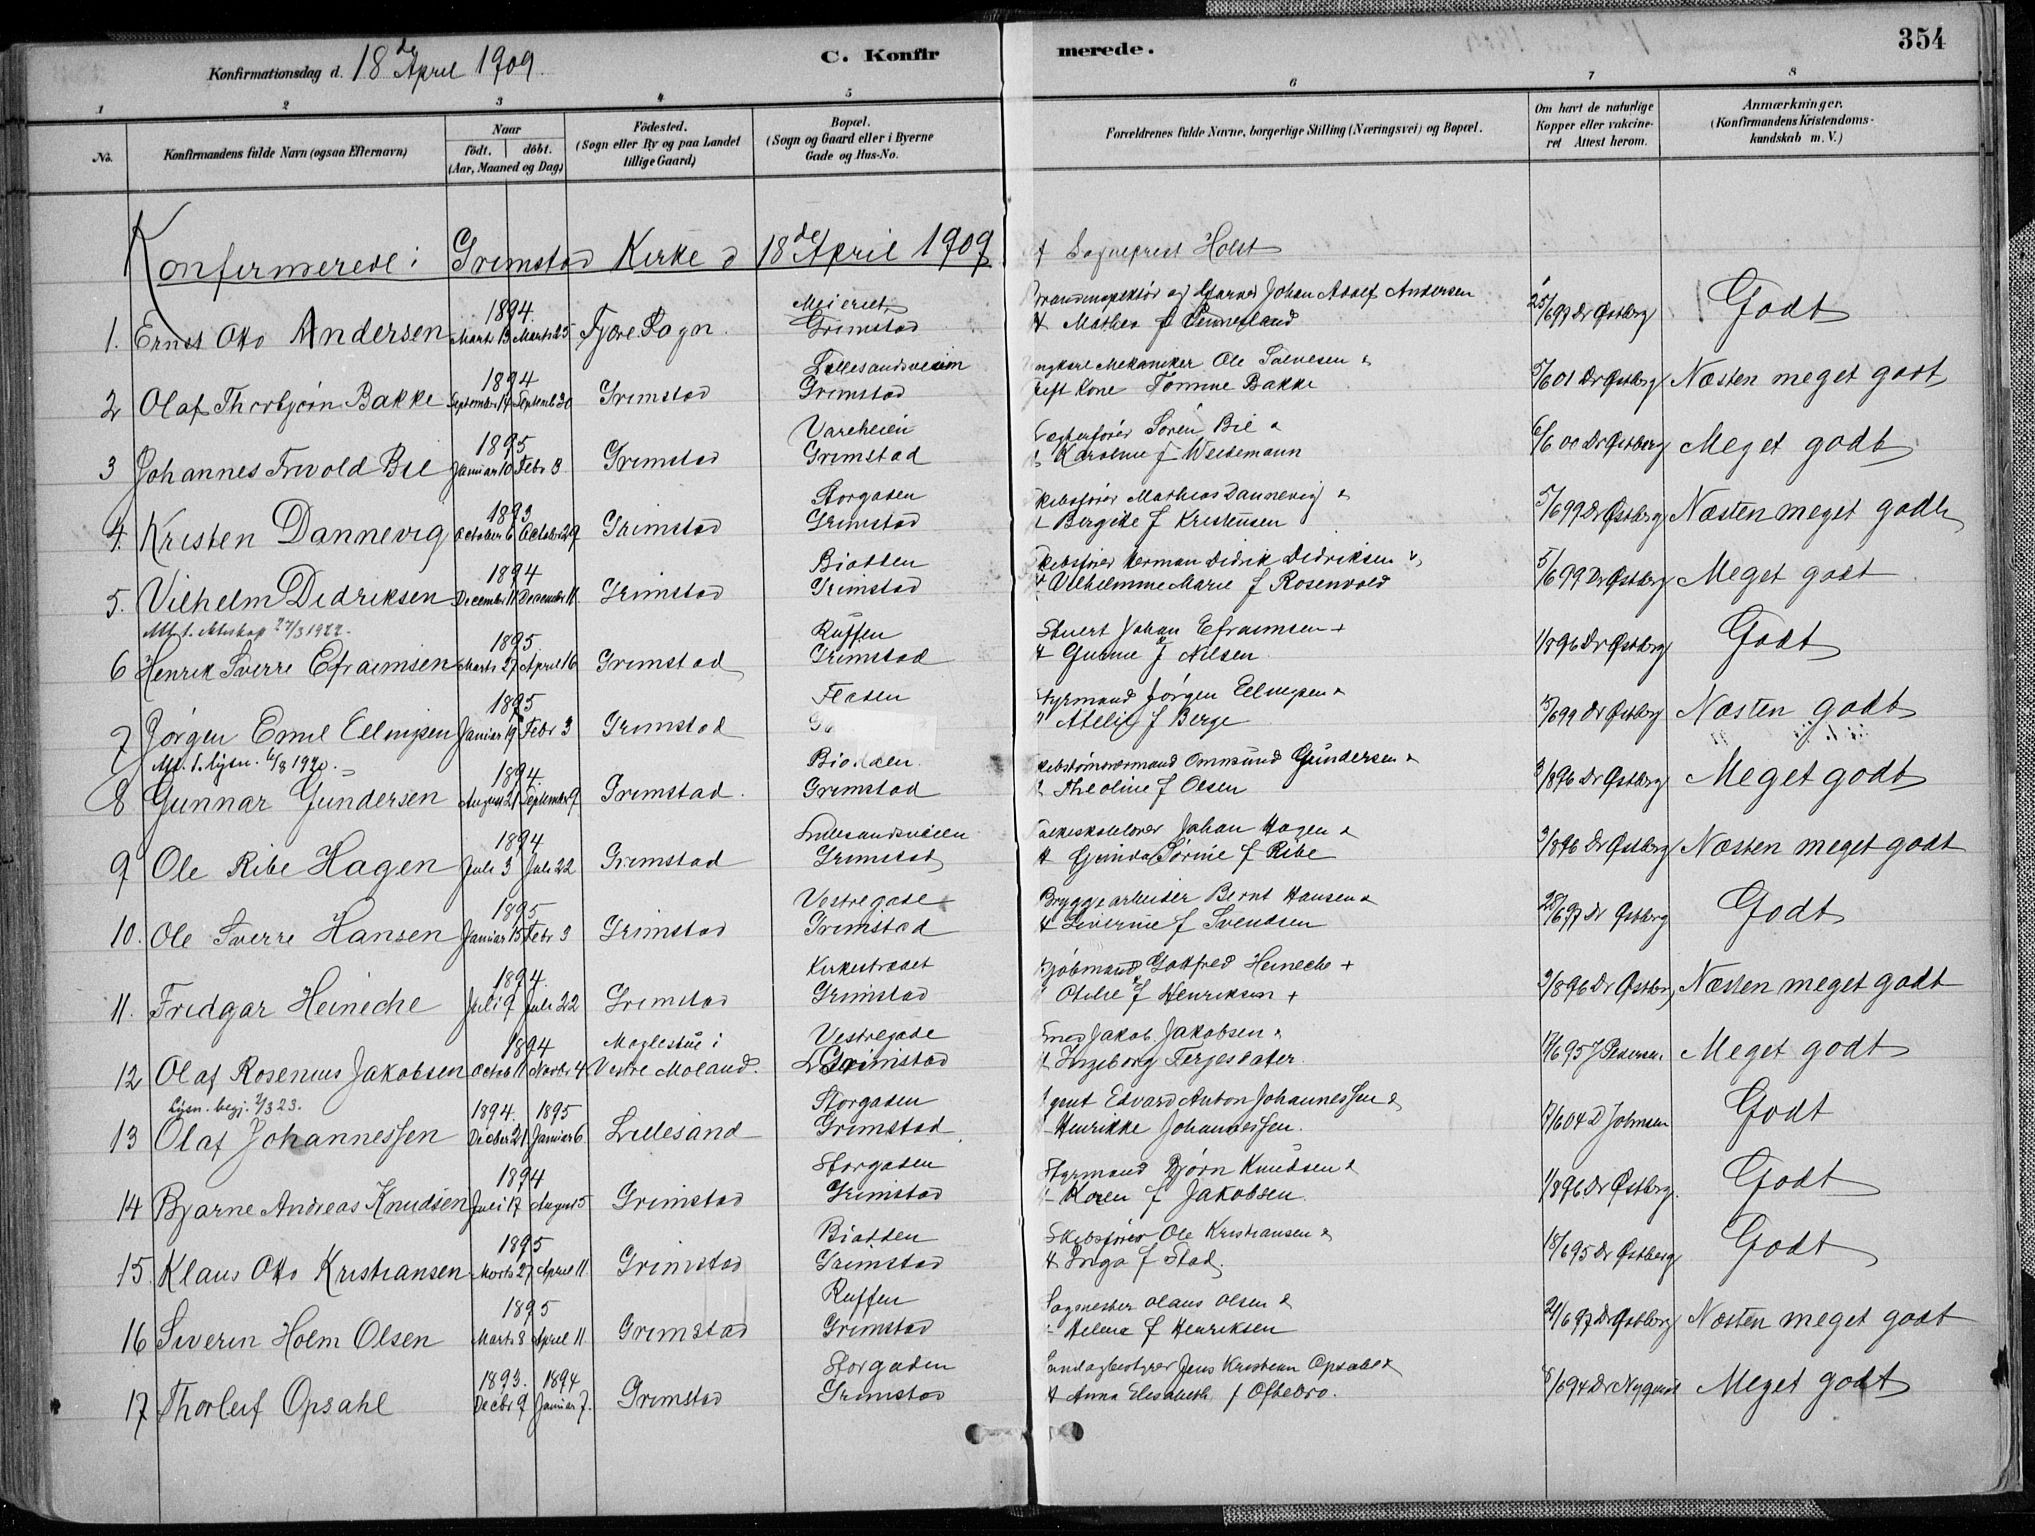 354
Konfirmationsdag d. 18de April 1909.
C. Konfirmerede.
1 2 3 4 5 6 7 8
No.
Konfirmandens fulde Navn (ogsaa Efternavn)
Naar
födt. döbt.
(Aar, Maaned og Dag)
Födested.
(Sogn eller By og paa Landet
tillige Gaard)
Bopæl.
(Sogn og Gaard eller i Byerne
Gade og Hus-No.
Forældrenes fulde Navne, borgerlige Stilling (Næringsvei) og Bopæl.
Om havt de naturlige
Kopper eller vakcineret Attest herom.
Anmærkninger.
(Konfirmandens Kristendomskundskab m. V.)
Konfirmerede i Grimstad Kirke d 18de April 1909 af Sogneprest Holst
1894. Meieriet og Johan Adolf Andersen
1. Ernst Otto Andersen Marts 13 Marts 25 Fjære Sogn. Grimstad & Mathea f 25/6 99 Dr Østberg Godt
1894 Lillesandsveien Mekaniker Ole Salvesen &
2 Olaf Thorbjørn Bakke September 14 Septemb 30 Grimstad Grimstad Kone Tomine Bakke 5/6 01 Dr Østberg Næsten meget godt
1895 Vareheien Søren Bie &
3 Johannes Trivold Bie Januar 10 Febr 3 Grimstad Grimstad Karoline f Weidemann 6/6 00 Dr Østberg Meget godt
1893 Storgaden Skibsfører Mathias Dannevig &
4. Kristen Dannevig October 6 October 29 Grimstad Grimstad Bergitte f Kristensen 5/6 99 Dr Østberg Næsten meget godt
1894 Biodden Skibsfører Herman Didrik Didriksen &
5. Vilhelm Didriksen December 11 December 11. Grimstad Grimstad & Vilhelmine Marie f Rosenvold 5/6 99 Dr Østberg Meget godt
27/3 1922.
1895 Ruffen Stuert Johan Efraimsen +
6 Henrik Sverre Efraimsen Marts 27 April 16 Grimstad Grimstad & Gunne f Nilsen. 1/8 96 Dr Østberg Godt
1895 Fladen Styrmand Jørgen Ellingsen &
7 Jørgen Emil Ellingsen Januar 19 Febr 3 Grimstad f Berge 5/6 99 Dr Østberg Næsten godt
Att. t. lysn. 6/8 1920.
1894. Biodden Skibstømmermand Ommund Gundersen &
8 Gunnar Gundersen August 21 September 9 Grimstad. Grimstad & Theoline f Olsen 3/8 96 Dr Østberg Meget godt
1894 Lillesandsveien Folkeskolelærer Johan Hagen &
9 Ole Ribe Hagen Juli 3 Juli 22 Grimstad Grimstad & Gjerda Sørine f Ribe 3/8 96 Dr Østberg Næsten meget godt
1895 Vestregade Bryggearbeider Bernt Hansen &
10. Ole Sverre Hansen Januar 15 Febr 3 Grimstad Grimstad & Severine f Svendsen 28/6 97 Dr Østberg Godt
1894. Kirkestrædet Kjøbmand Gotfred Heineche +
11. Fridgar Heineche Juli 9 Juli 22 Grimstad Grimstad Otilie f Henriksen + 3/8 96 Dr Østberg Næsten meget godt
1894 Moglestue i Vestregade Smed Jakob Jakobsen &
12 Olaf Rosenius Jakobsen Octob 11 Novbr 4 Vestre Moland. Grimstad & Ingeborg Terjesdater. J Pedersen. Meget godt
Lysn. begj. 2/3 23.
1894. 1895 Storgaden Agent Edvard Anton Johannessen &
13 Olaf Johannessen Decber 21 Januar 6 Lillesand Grimstad Henrikke Johannessen. 7/6 04 D Johnsen Godt
1894 Storgaden Styrmand Bjørn Knudsen &
14 Bjarne Andreas Knudsen Juli 17 August 5 Grimstad Grimstad & Karen f Jakobsen. 1/8 96 Dr Østberg. Godt
1895 Biodden Skibsfører Ole Kristiansen &
15 Klaus Otto Kristiansen Marts 27 April 11 Grimstad Grimstad & Inga f Stad. 18/6 95 Dr Østberg Godt
1895 Ruffen Sagmester Olaus Olsen &
16 Severin Holm Olsen Marts 8 April 11. Grimstad Grimstad Helene f Henriksen 21/6 97 Dr Østberg Næsten meget godt
1893. 1894 Storgaden Jens Kristian Opsahl &
17 Thorleif Opsahl Decbr 9 Januar 7. Grimstad Grimstad & Anna Elisabeth f Oftebro. Meget godt